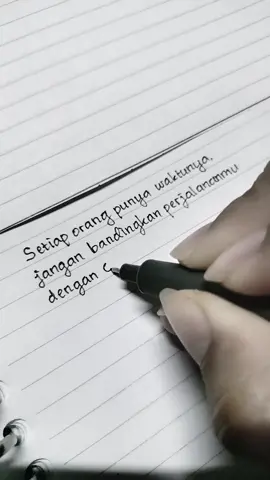 Setiap orang punya waktunya.
jangan bandingkan perjalananmu
dengan